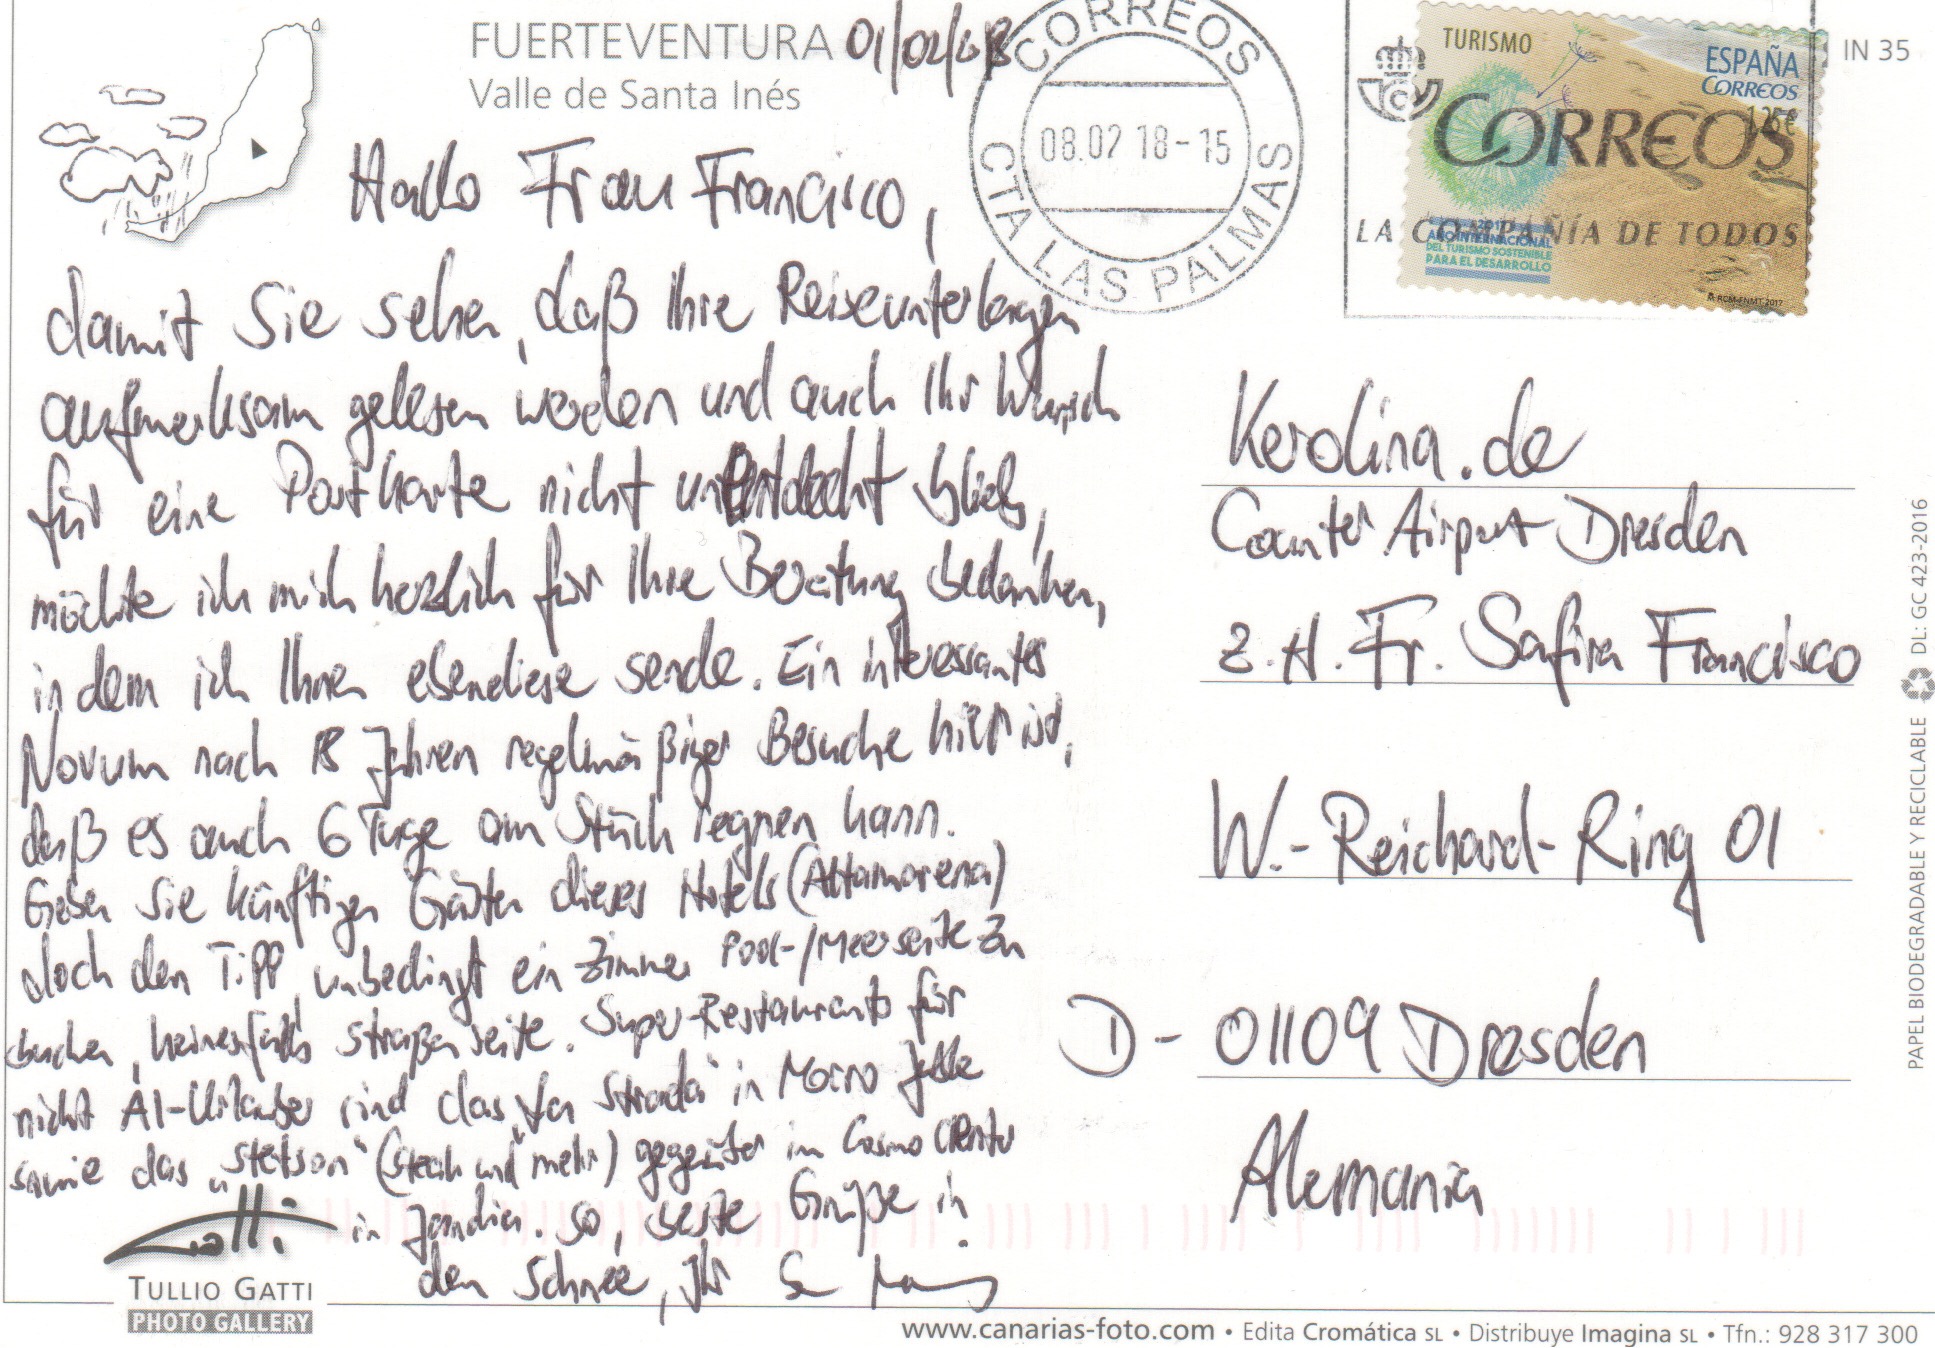 FUERTEVENTURA 01/02/18
Valle de Santa Inés
CORREOS
08.02 18-15
CTA LAS PALMAS
CORREOS
LA COMPAÑÍA DE TODOS
TURISMO
ESPAÑA
CORREOS
1,25€
2017
AÑO INTERNACIONAL
DEL TURISMO SOSTENIBLE
PARA EL DESARROLLO
RCM-FNMT-2017
IN 35
Hallo Frau Francisco,
damit Sie sehen, daß Ihre Reiseunterlagen
aufmerksam gelesen werden und auch Ihr Wunsch
für eine Postkarte nicht unentdeckt blieb,
möchte ich mich herzlich für Ihre Beratung bedanken,
in dem ich Ihnen ebendiese sende. Ein interessantes
Novum nach 18 Jahren regelmäßiger Besuche hier ist,
daß es auch 6 Tage am Stück regnen kann.
Geben Sie künftigen Gästen dieses Hotels (Altamarena)
doch den Tipp, unbedingt ein Zimmer Pool-/Meerseite zu
buchen, keinesfalls Straßenseite. Super-Restaurants für
nicht AI-Urlauber sind das "La Strada" in Morro Jable
sowie das "Stetson" (Steak und mehr) gegenüber im Cosmo Center
in Jandia. So, beste Grüße in
den Schnee, Ihr
Kerolina.de
Counter Airport Dresden
z.H. Fr. Safira Francisco
W.-Reichard-Ring 01
D - 01109 Dresden
Alemania
Gatti
TULLIO GATTI
PHOTO GALLERY
www.canarias-foto.com • Edita Cromática SL • Distribuye Imagina SL • Tfn.: 928 317 300
PAPEL BIODEGRADABLE Y RECICLABLE DL: GC 423-2016